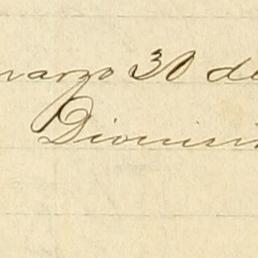 marzo 30 de
Dionisi